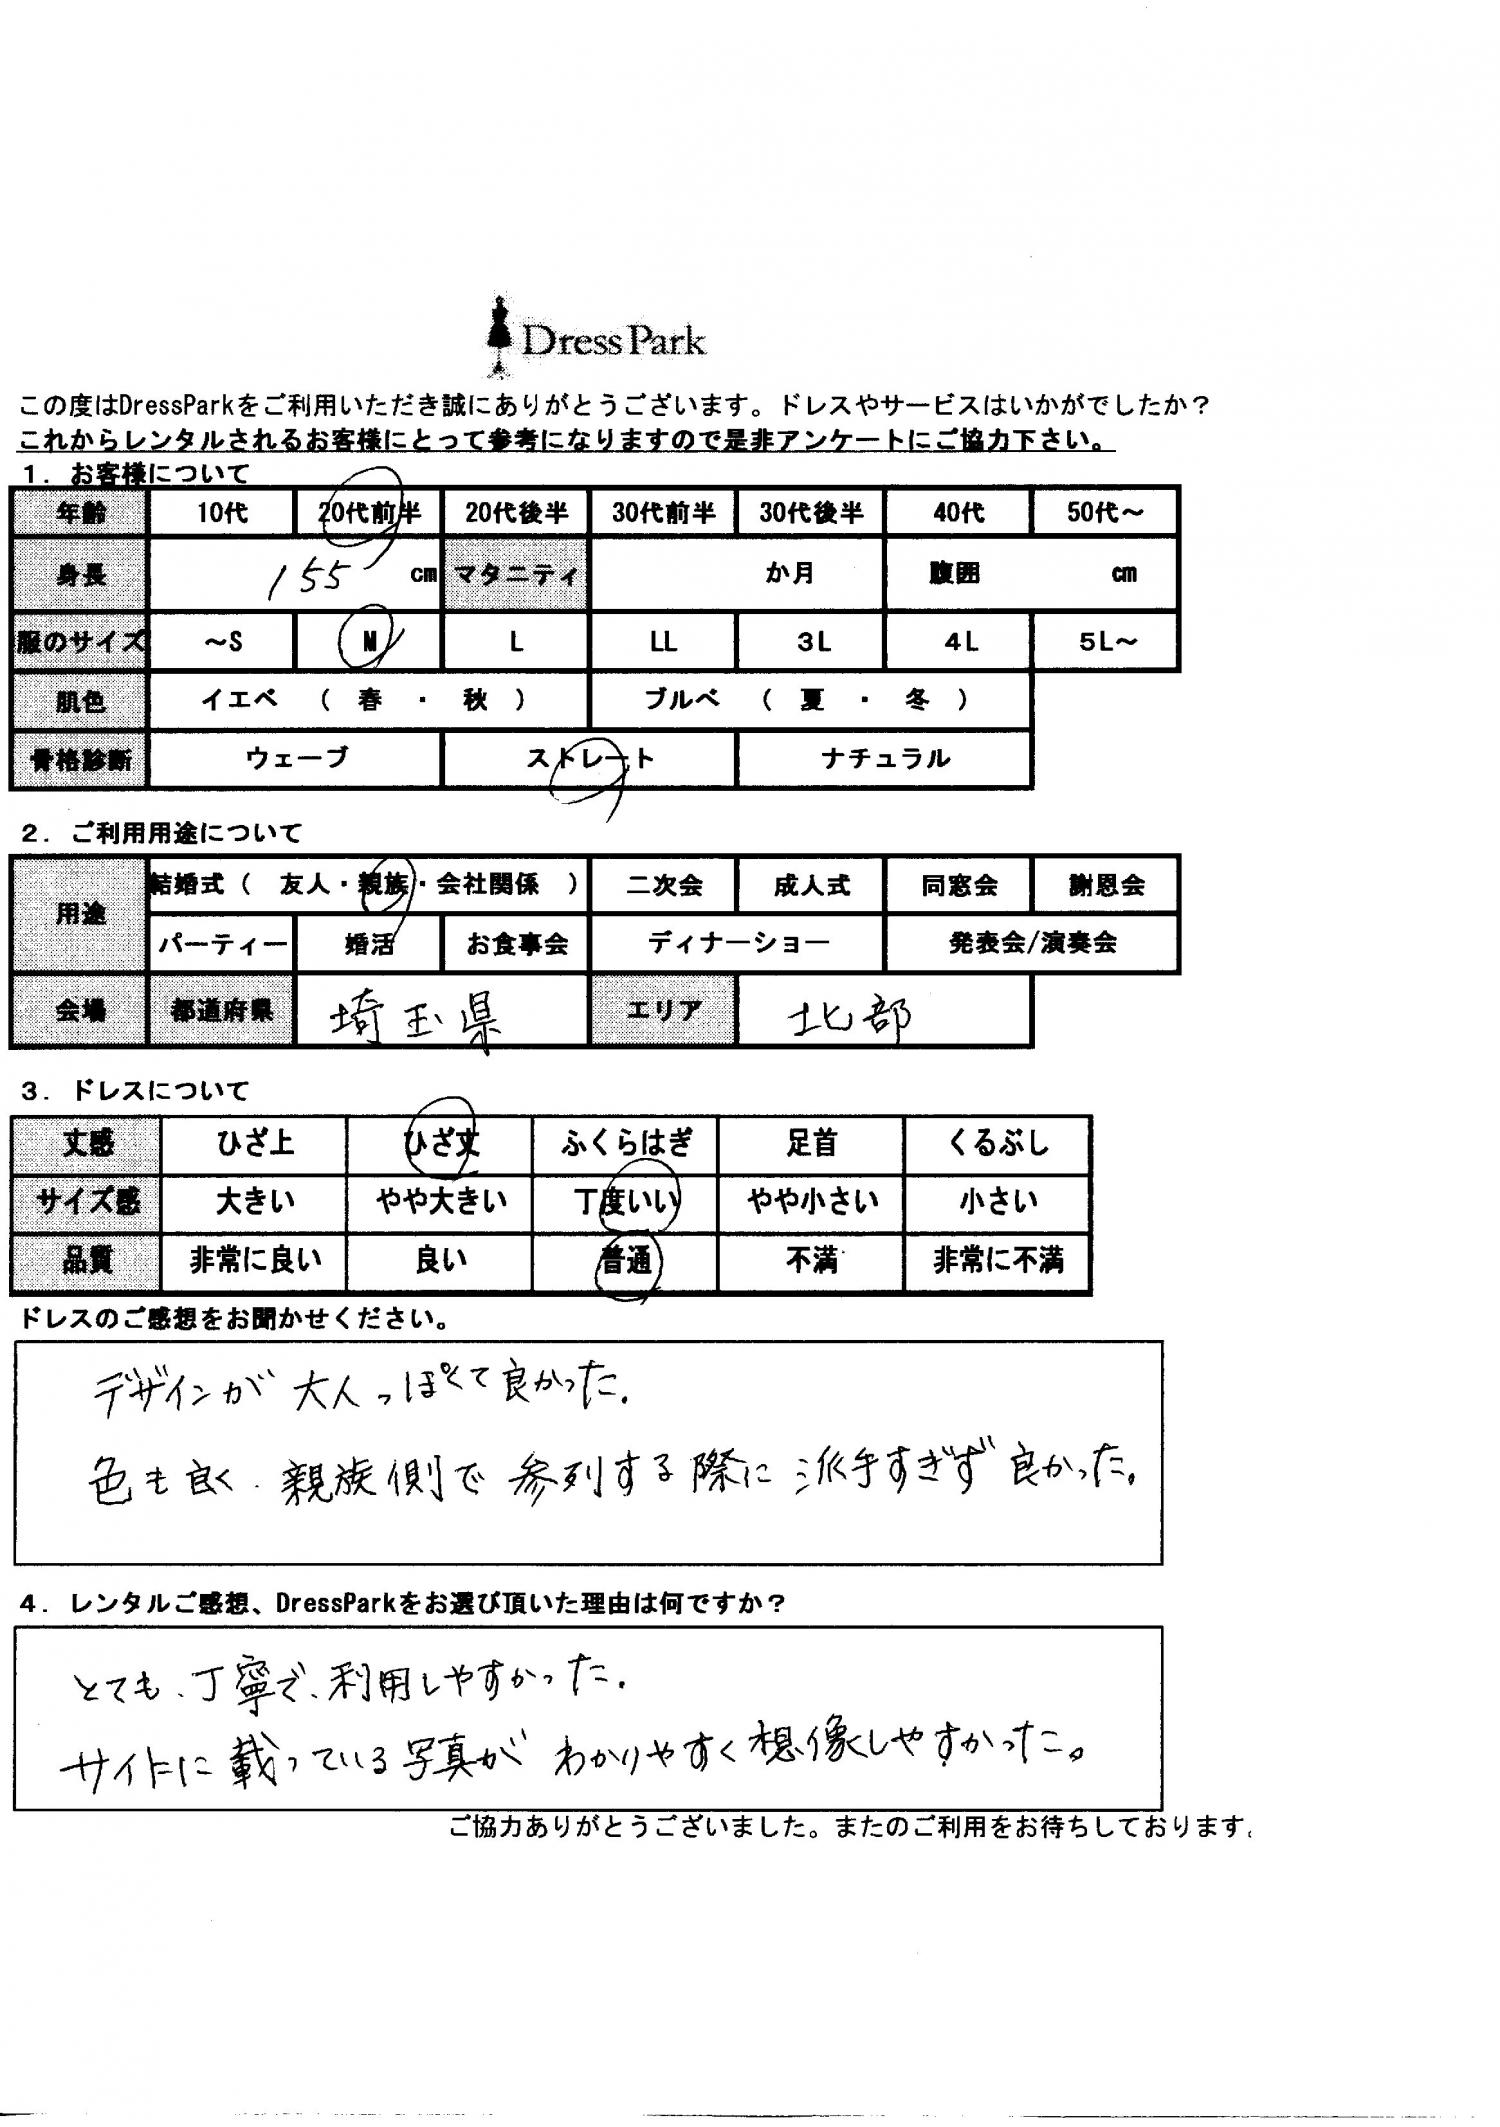 Dress Park
この度はDressParkをご利用いただき誠にありがとうございます。ドレスやサービスはいかがでしたか？
これからレンタルされるお客様にとって参考になりますので是非アンケートにご協力下さい。
１．お客様について
年齢 10代 20代前半 20代後半 30代前半 30代後半 40代 50代～
身長 155 cm マタニティ か月 腹囲 cm
服のサイズ ～S M L LL 3L 4L 5L～
肌色 イエベ （ 春 ・ 秋 ） ブルベ （ 夏 ・ 冬 ）
骨格診断 ウェーブ ストレート ナチュラル
２．ご利用用途について
用途 結婚式（ 友人・親族・会社関係 ） 二次会 成人式 同窓会 謝恩会
パーティー 婚活 お食事会 ディナーショー 発表会/演奏会
会場 都道府県 埼玉県 エリア 北部
３．ドレスについて
丈感 ひざ上 ひざ丈 ふくらはぎ 足首 くるぶし
サイズ感 大きい やや大きい 丁度いい やや小さい 小さい
品質 非常に良い 良い 普通 不満 非常に不満
ドレスのご感想をお聞かせください。
デザインが大人っぽくて良かった。
色も良く、親族側で参列する際に派手すぎず良かった。
４．レンタルご感想、DressParkをお選び頂いた理由は何ですか？
とても、丁寧で、利用しやすかった。
サイトに載っている写真がわかりやすく想像しやすかった。
ご協力ありがとうございました。またのご利用をお待ちしております。